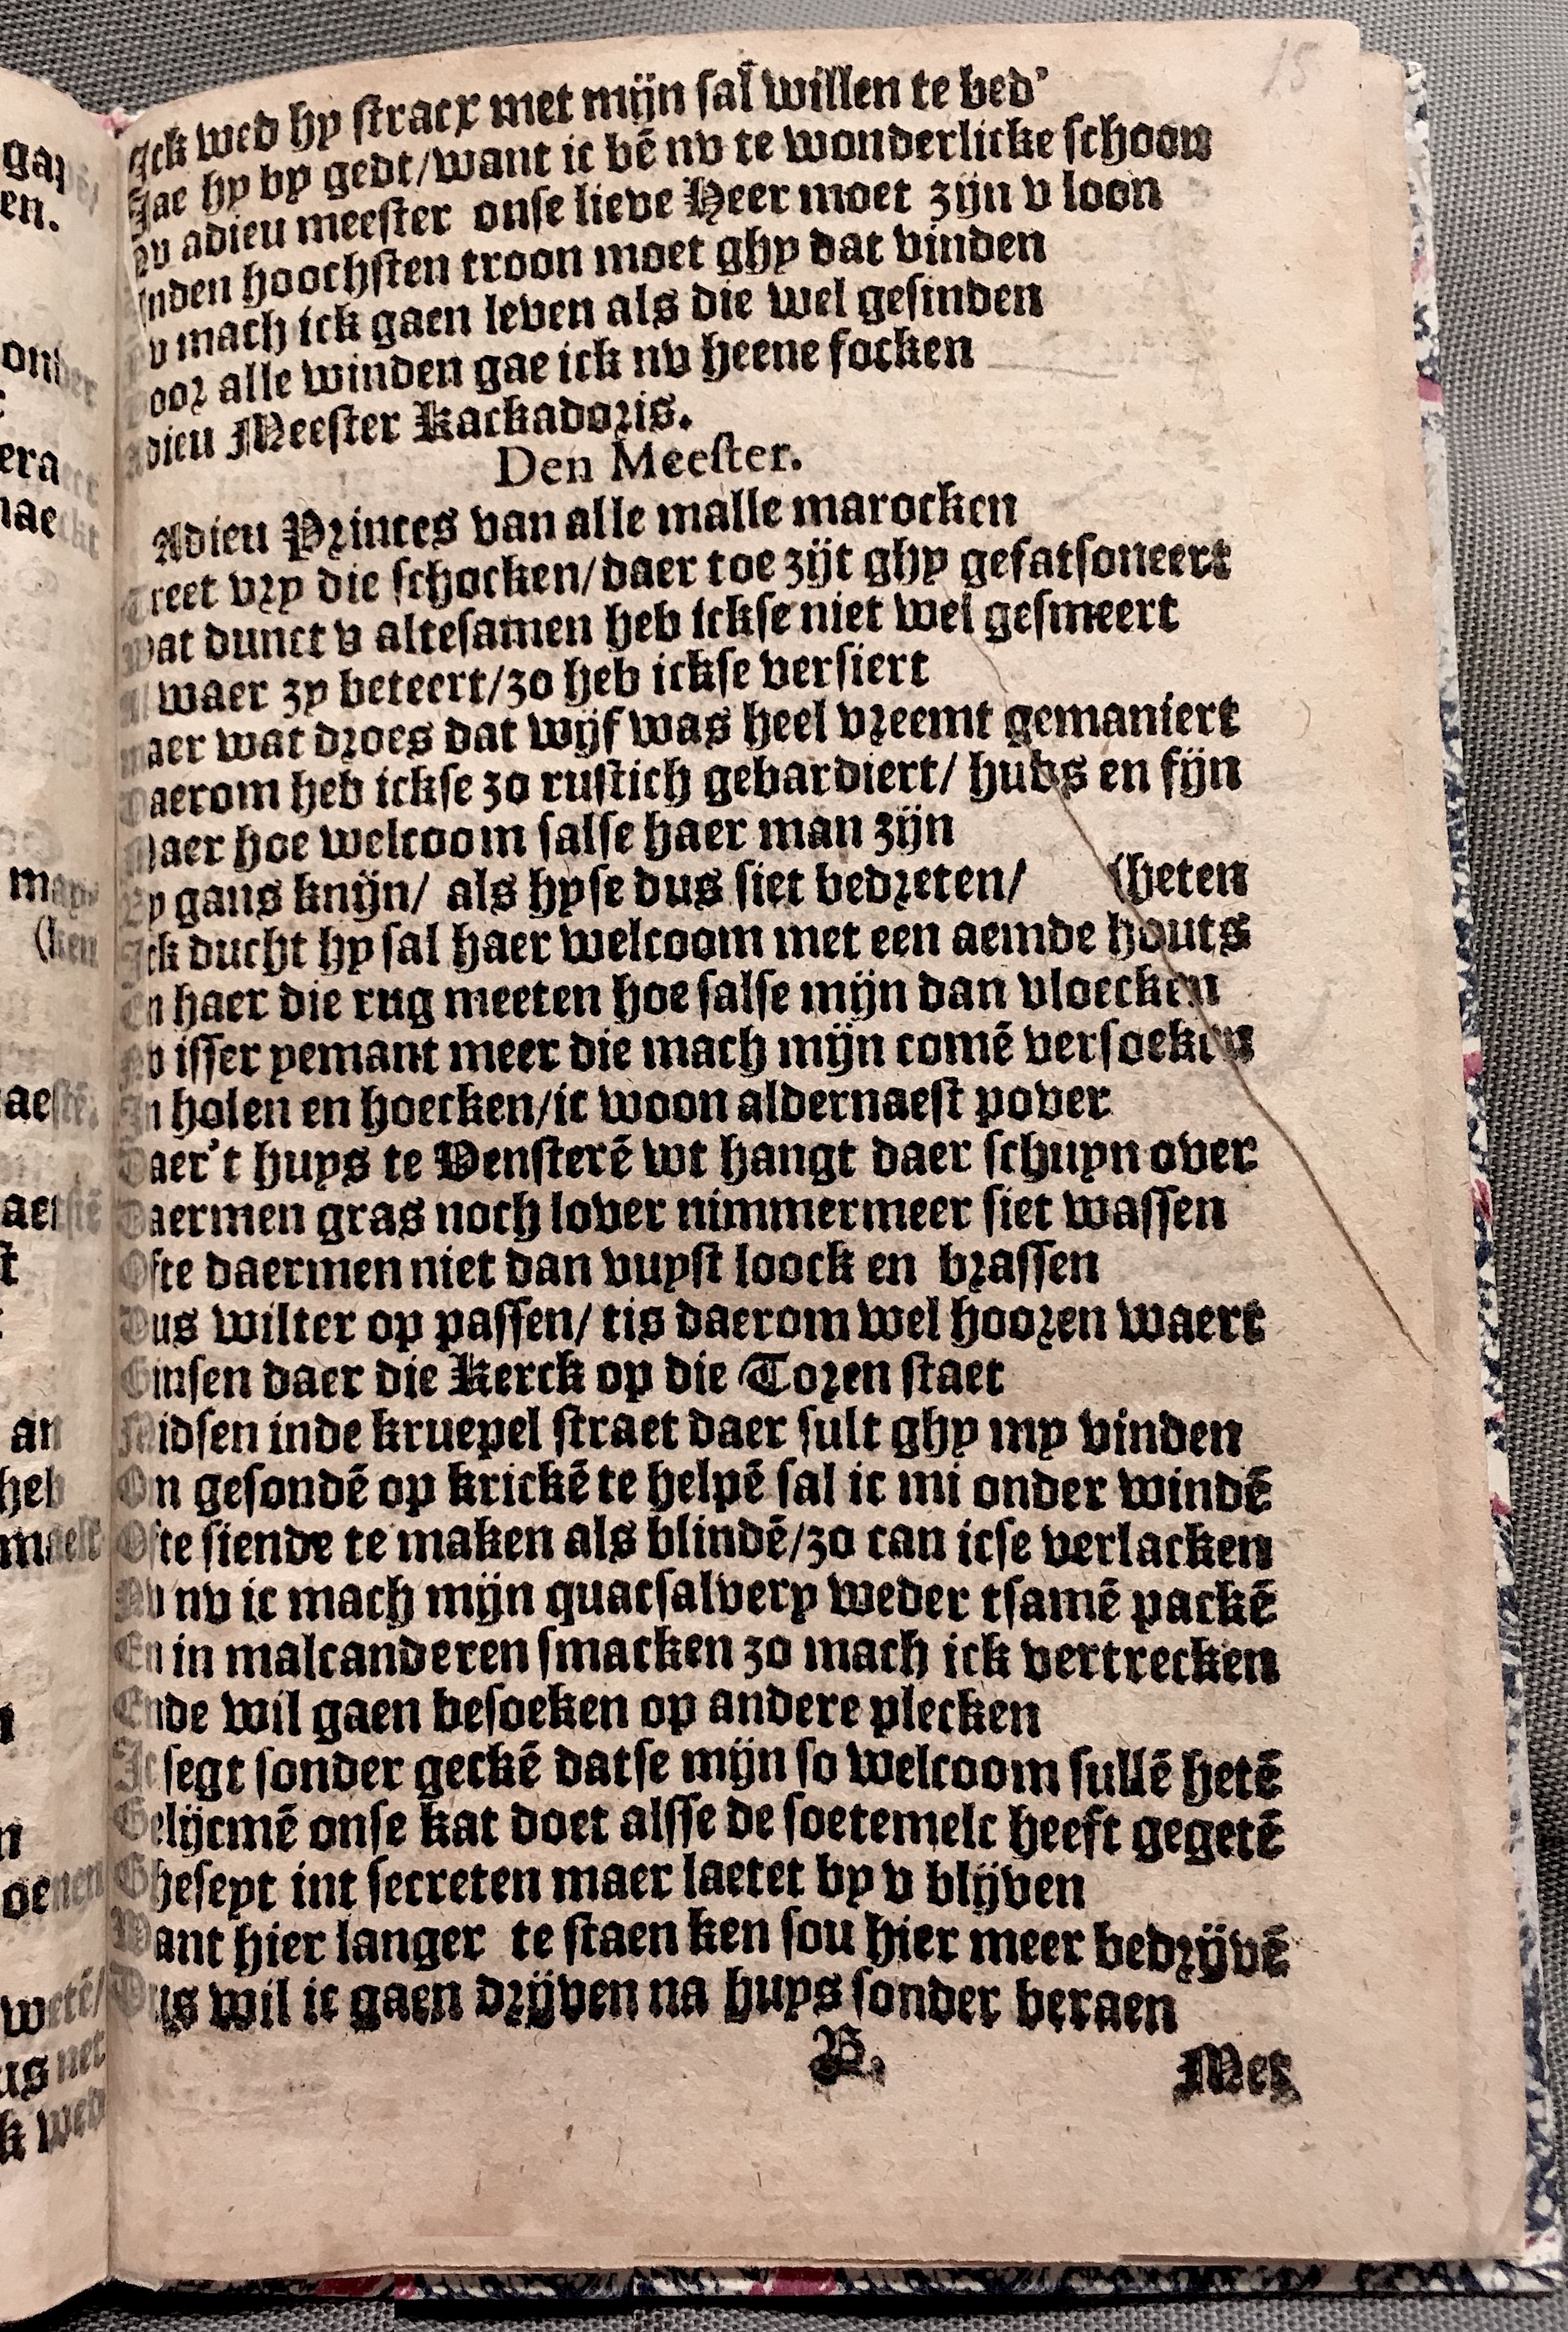 15
Ick wed hy stracx met mijn sal willen te bed'
Jae hy by gedt/want ic bē nv te wonderlicke schoon
Nv adieu meester onse lieve Heer moet zijn v loon
Inden hoochsten troon moet ghy dat vinden
Nv mach ick gaen leven als die wel gesinden
Voor alle winden gae ick nv heene focken
Adieu Meester Kackadoris.
Den Meester.
Adieu Princes van alle malle marocken
Treet vry die schocken/daer toe zijt ghy gefatsoneert
Wat dunct v altesamen heb ickse niet wel gesmeert
Al waer zy beteert/zo heb ickse versiert
Maer wat droes dat wijf was heel vreemt gemaniert
Daerom heb ickse zo rustich gebardiert/ hubs en fijn
Maer hoe welcoom salse haer man zijn
By gans knijn/ als hyse dus siet bedreten/ (heten
Ick ducht hy sal haer welcoom met een aemde houts
En haer die rug meeten hoe salse mijn dan vloecken
Nv isser yemant meer die mach mijn comē versoeken
In holen en hoecken/ic woon aldernaest pover
Daer't huys te Vensterē wt hangt daer schuyn over
Daermen gras noch lover nimmermeer siet wassen
Ofte daermen niet dan vuyst loock en brassen
Dus wilter op passen/ tis daerom wel hooren waert
Ginsen daer die Kerck op die Toren staet
Midsen inde kruepel straet daer sult ghy my vinden
Om gesondē op krickē te helpē sal ic mi onder windē
Ofte siende te maken als blindē/zo can icse verlacken
Nv nv ic mach mijn quacsalvery weder tsamē packē
En in malcanderen smacken zo mach ick vertrecken
Ende wil gaen besoeken op andere plecken
Ic segt sonder geckē datse mijn so welcoom sullē hetē
Gelijcmē onse kat doet alsse de soetemelc heeft gegetē
Gheseyt int secreten maer laetet by v blijven
Want hier langer te staen ken sou hier meer bedrijvē
Dus wil ic gaen drijven na huys sonder beraen
B.
Met